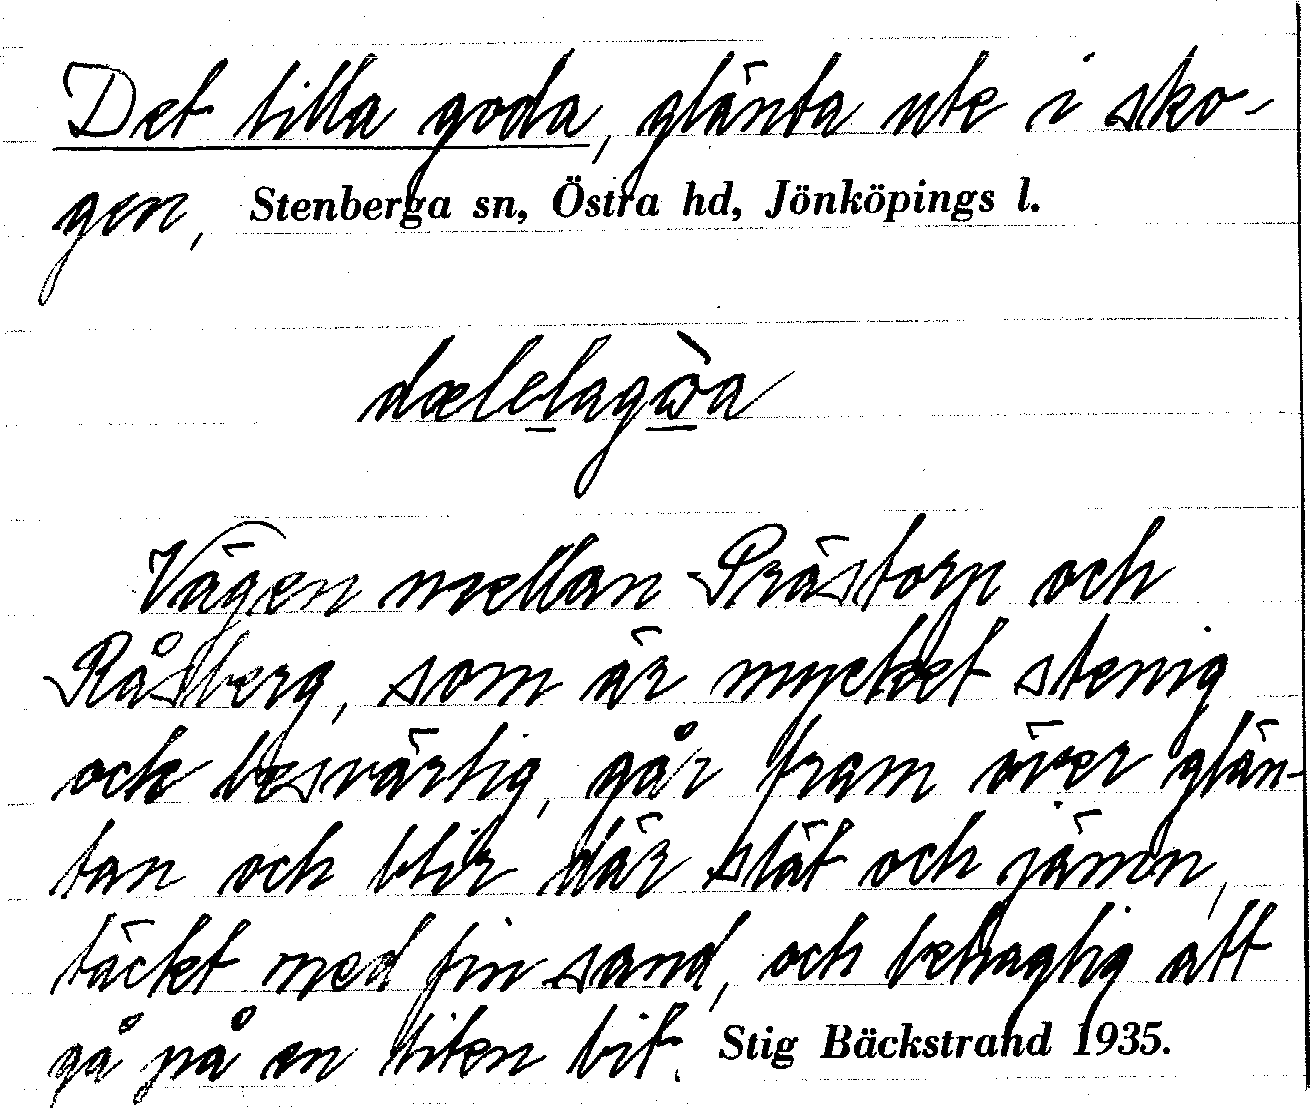 Det lilla goda, glänta ute i sko-
gen, Stenberga sn, Östra hd, Jönköpings l.
dælelagὼa
Vägen mellan Prästorp och
Råsberg, som är mycket stenig
och besvärlig, går fram över glän-
tan och blir där slät och jämn,
täckt med fin sand, och behaglig att
gå på en liten bit. Stig Bäckstrand 1935.